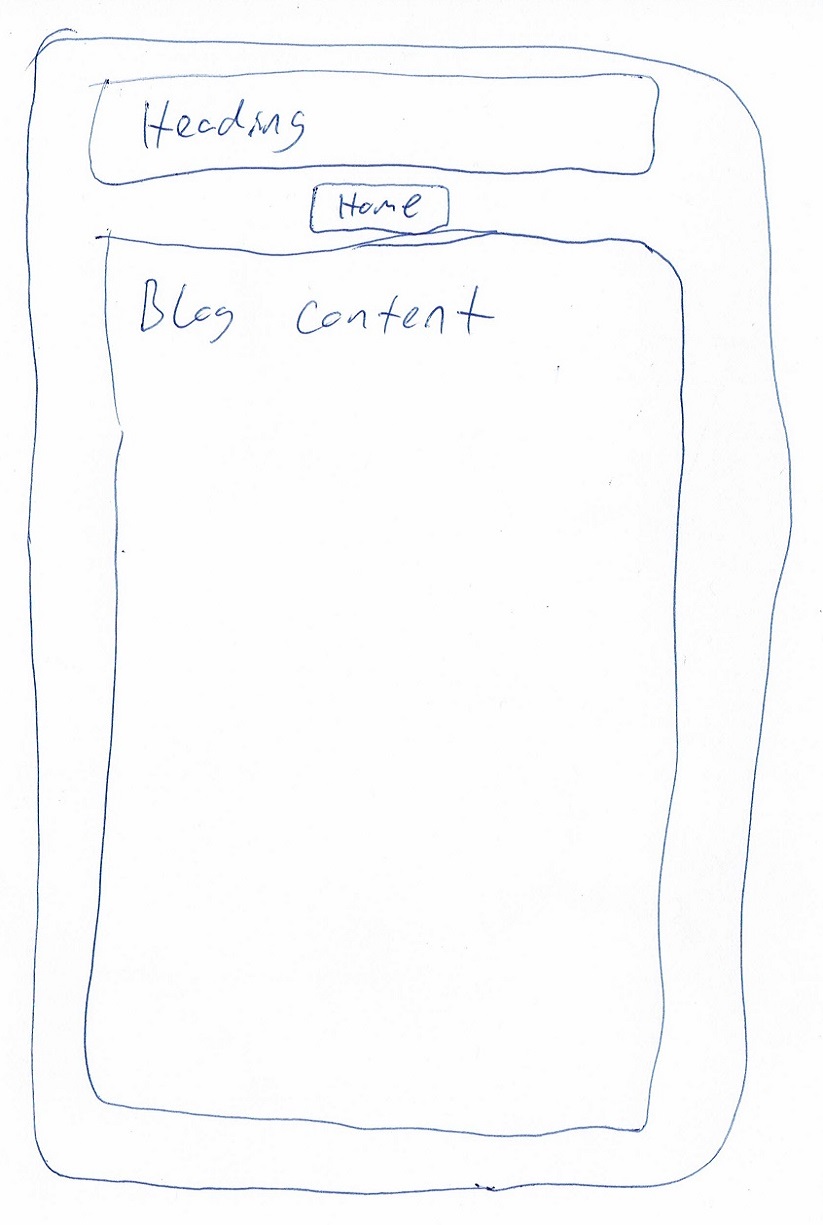 Heading
Home
Blog content